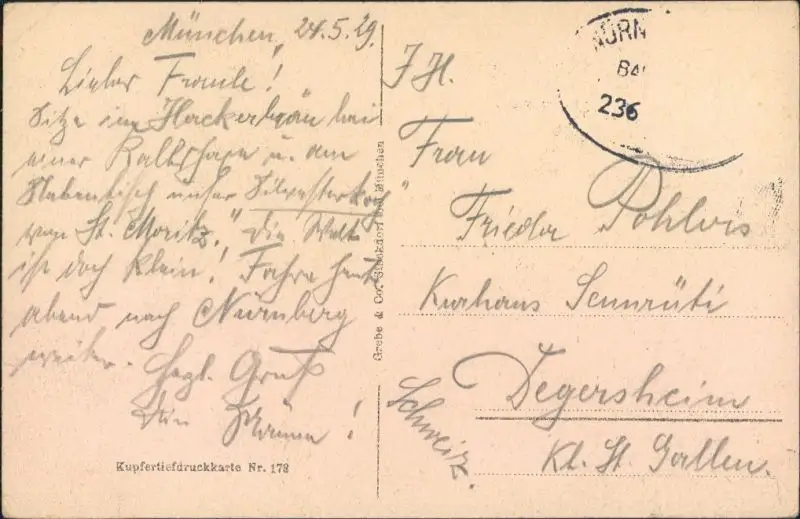 München, 24.5.29.
Liebes Fraule!
Sitze im Hackerbräu bei
einer Kalbshaxe u. am
Nebentisch unser „Silvesterkog
von St. Moritz." Die Welt
ist doch klein! Fahre heute
abend nach Nürnberg
weiter. Hzgl. Gruß
Dein
Kupfertiefdruckkarte Nr. 178
Grebe & Co., Stockdorf bei München
NÜRN
BA
236
Frau
Friedor Pohlers
Kurhaus Sennrüti
Degersheim
Kt. St. Gallen.
Schweiz.